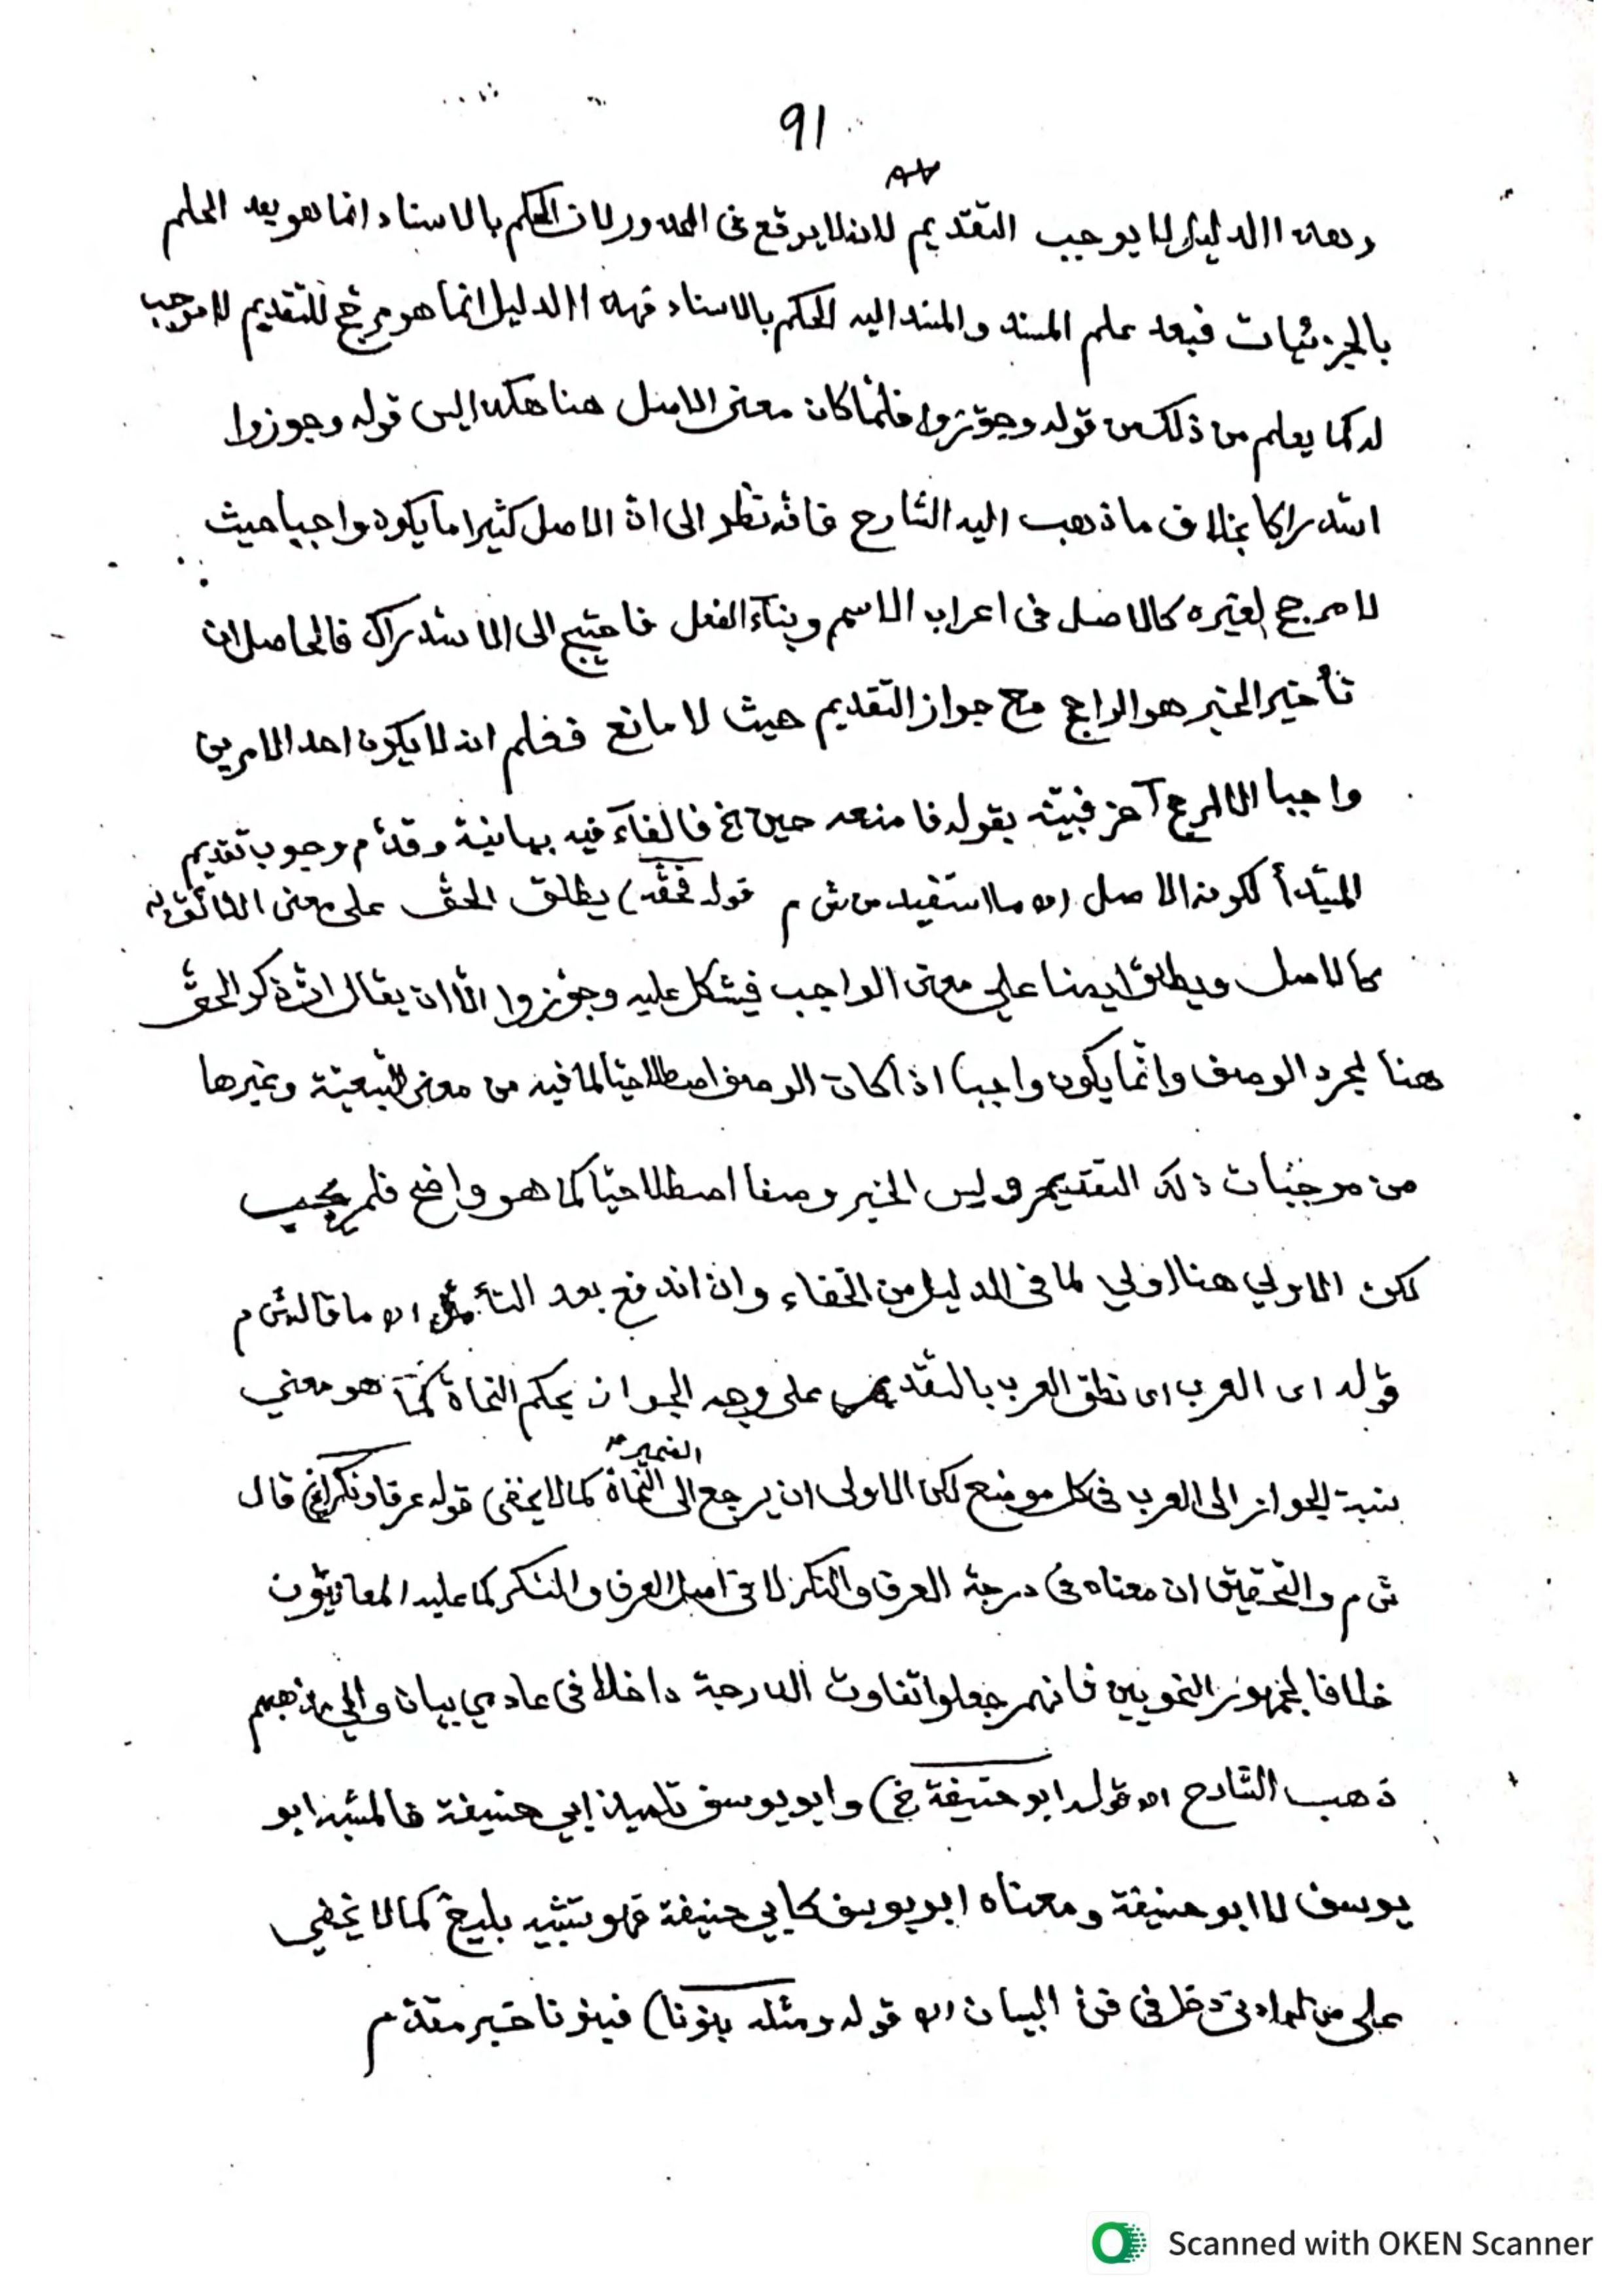 91
٨٧
وهذا الدليل لا يوجب التقديم لانه لا يوقع فى المحذور لان الحكم بالاسناد انما هو بعد العلم
بالجزئيات فبعد علم المسند والمسند اليه الحكم بالاسناد فهذا الدليل انما هو مرجّح للتقديم لا موجب
له كما يعلم من ذلك من قوله وجوّزوا فلمّا كان معنى الاصل هنا هكذا ليس قوله وجوزوا
استدراكا بخلاف ما ذهب اليه الشارح فانّه نظر الى انّ الاصل كثيرا ما يكون واجبا حيث
لا مرجح لغيره كالاصل فى اعراب الاسم وبنآء الفعل فاحتيج الى الاستدراك فالحاصل ان
تأخير الخبر هو الراجح مع جواز التقديم حيث لا مانع فعلم انه لا يكون احد الامرين
واجبا الا لمرجح آخر فبيّنه بقوله فامنعه حين الخ فالفآء فيه بيانية وقدّم وجوب تقديم
المبتدأ لكونه الاصل اه ما استفيد من ش م قوله فحقّه) يطلق الحقّ على معنى اللائق به
كالاصل ويطلق ايضا على معنى الواجب فيشكل عليه وجوّزوا الّا ان يقال انّ ذكر الحقّ
هنا لمجرد الوصف وانّما يكون واجبا اذا كان الوصف اصطلاحيّا لما فيه من معنى التّبعيّة وغيرها
من موجبات ذلك التقديم وليس الخبر وصفا اصطلاحيّا كما هو واضح فلم يجب
لكن الاولى هنا اولي لما فى الدليل من الخفاء وان اندفع بعد التأمّل اه ما قاله ش م
قوله اى العرب اى نطق العرب بالتقديم على وجه الجواز بحكم النحاة كما هو معني
نسبة الجواز الى العرب فى كل موضع لكن الاولى ان يرجع الضمير الى النّحاة كما لا يخفى قوله عرفا ونكرا الخ) قال
ش م والتحقيق ان معناه فى درجة العرف والنكر لا فى اصل العرف والنكر كما عليه المعانيّون
خلافا لجمهور النحويين فانهم جعلوا تفاوت الدرجة داخلا فى عادمي بيان والى مذهبهم
ذهب الشارح اه قوله ابو حنيفة الخ) وابو يوسف تلميذ ابي حنيفة فالمشبّه ابو
يوسف لا ابو حنيفة ومعناه ابو يوسف كابي حنيفة فهو تشبيه بليغ كما لا يخفي
على من له ادنى دخل فى فنّ البيان اه قوله ومثله بنونا) فبنونا خبر مقدّم
Scanned with OKEN Scanner